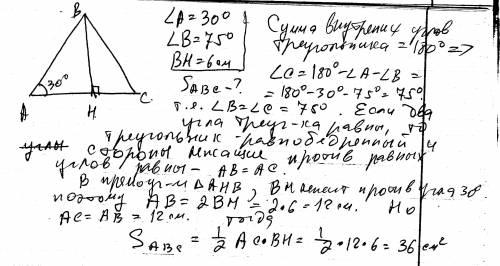 B
30°
A H C
∠A = 30°
∠B = 75°
BH = 6 см
S ABC - ?
Сумма внутрених углов
треугольника = 180° =>
∠C = 180° - ∠A - ∠B =
= 180° - 30 - 75° = 75°
т.е. ∠B = ∠C = 75°. Если два
угла треуг-ка равны, то
углы треугольник - равнобедренный и
стороны лежащие против равных
углов равны - AB = AC.
В прямоуг-м △AHB, BH лежит против угла 30°
поэтому AB = 2BH = 2·6 = 12 см. Но
AC = AB = 12 см. тогда
S ABC = 1/2 AC·BH = 1/2·12·6 = 36 см²